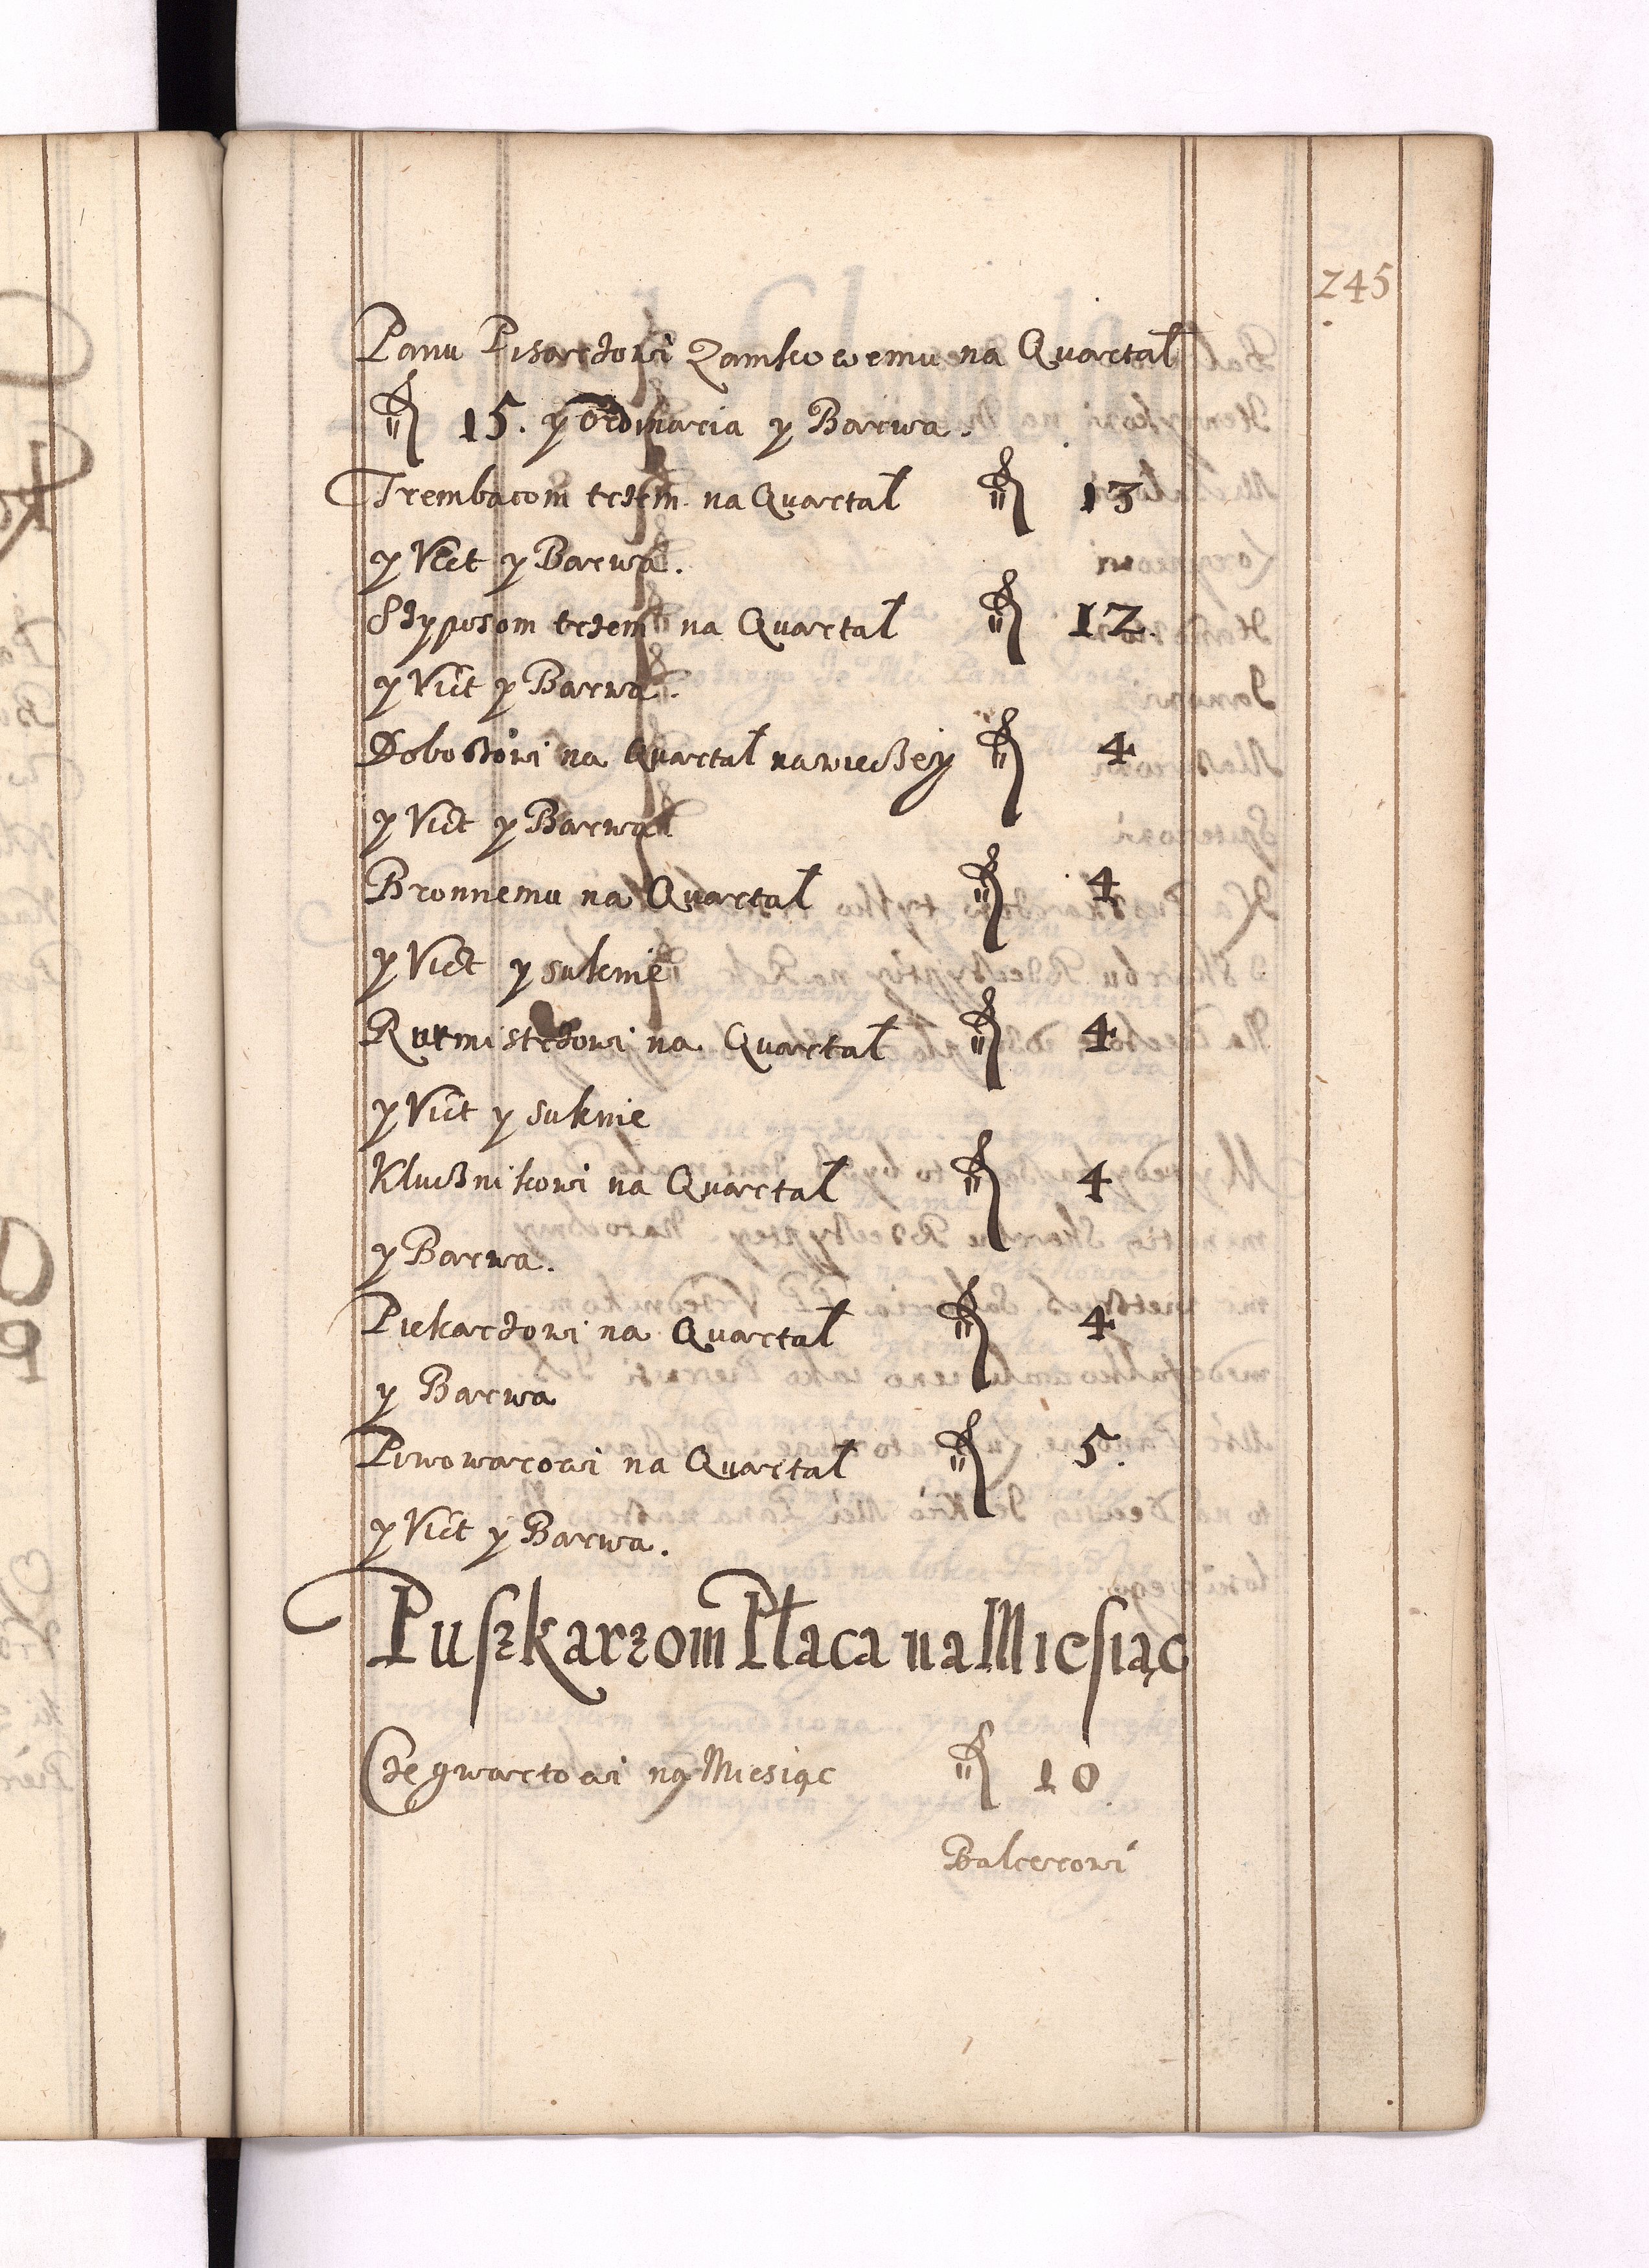 245
Panu Pisarzowi Zamkowemu na Quartał
fl 15. y Ordinaria y Barwa.
Trembaczom trzem na Quartał fl 13
y Vict y Barwa.
Szyposom trzem na Quartał fl 12.
y Vict y Barwa.
Doboszowi na Quartał nawieczey fl 4
y Vict y Barwa
Bronnemu na Quartał fl 4
y Vict y suknie
Rurmistrzowi na Quartał fl 4
y Vict y suknie
Klucznikowi na Quartał fl 4
y Barwa.
Piekarzowi na Quartał fl 4
y Barwa
Piwowarowi na Quartał fl 5.
y Vict y Barwa.
Puszkarzom Płaca na Miesiąc
Zegwartowi na Miesiąc fl 10.
Balcerowi